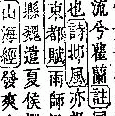 流兮瞿蘭註
也詩北風亦
東都賦雨師
縣魏遣夏侯
山海經發爽